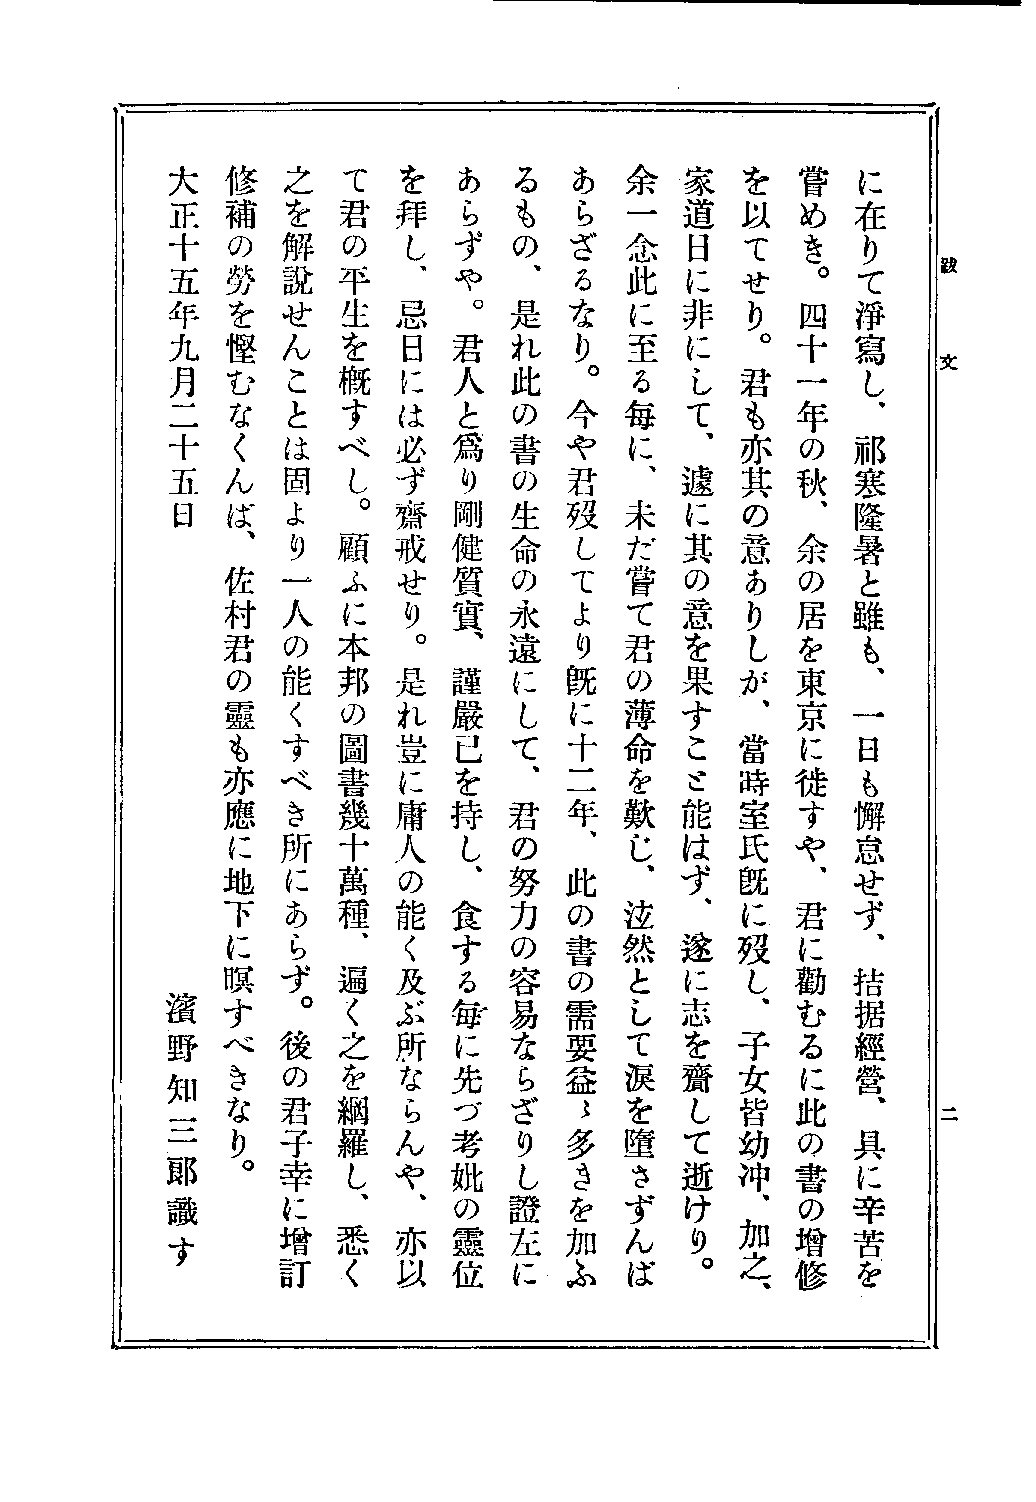 跋文
二
に在りて淨寫し、祁寒隆暑と雖も、一日も懈怠せず、拮据經營、具に辛苦を
嘗めき。四十一年の秋、余の居を東京に徙すや、君に勸むるに此の書の增修
を以てせり。君も亦其の意ありしが、當時室氏旣に歿し、子女皆幼冲、加之、
家道日に非にして、遽に其の意を果すこと能はず、遂に志を齎して逝けり。
余一念此に至る每に、未だ嘗て君の薄命を歎じ、泫然として淚を墮さずんば
あらざるなり。今や君歿してより旣に十二年、此の書の需要益〻多きを加ふ
るもの、是れ此の書の生命の永遠にして、君の努力の容易ならざりし證左に
あらずや。君人と爲り剛健質實、謹嚴已を持し、食する每に先づ考妣の靈位
を拜し、忌日には必ず齋戒せり。是れ豈に庸人の能く及ぶ所ならんや、亦以
て君の平生を槪すべし。顧ふに本邦の圖書幾十萬種、遍く之を網羅し、悉く
之を解說せんことは固より一人の能くすべき所にあらず。後の君子幸に增訂
修補の勞を慳むなくんば、佐村君の靈も亦應に地下に瞑すべきなり。
大正十五年九月二十五日
濱野知三郞識す